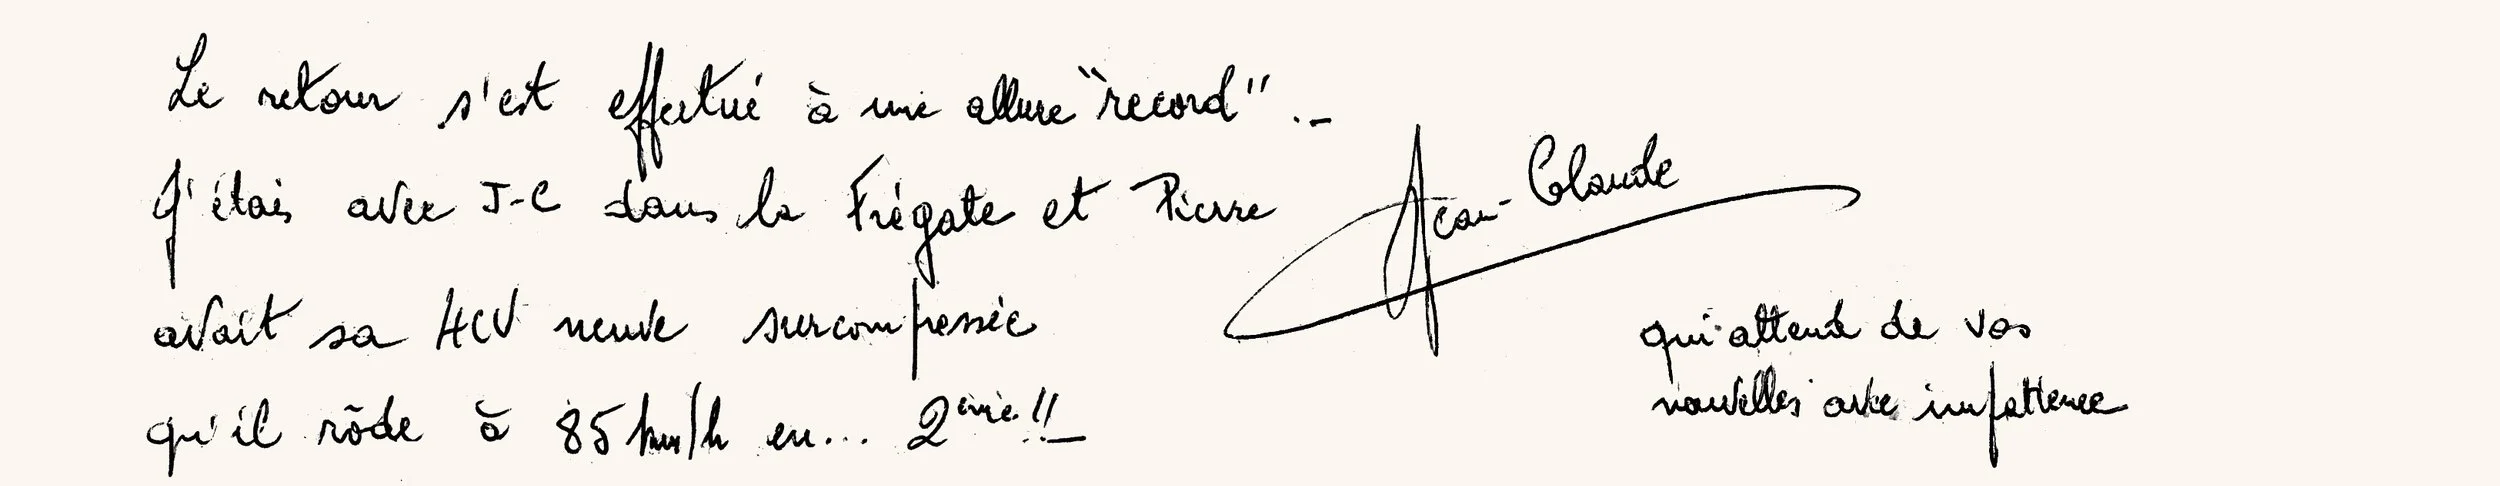 Le retour s'est effectué à une allure "record" .-
J'étais avec J-C dans la Frégate et Pierre
avait sa 4CV neuve surcompressée
qu'il rôde à 85 km/h en... 2ème !!
Jean-Claude
qui attend de vos
nouvelles avec impatience